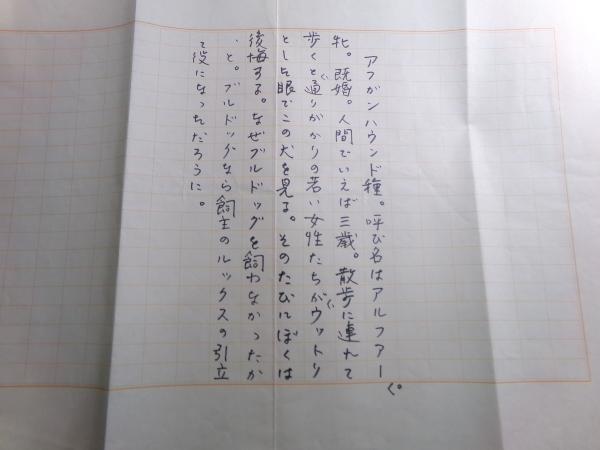 アフガンハウンド種。呼び名はアルファー。
牝。既婚。人間でいえば三歳。散歩に連れて
歩くと通りがかりの若い女性たちがウットリ
とした眼でこの犬を見る。そのたびにぼくは
後悔する。なぜブルドッグを飼わなかったか
、と。ブルドッグなら飼主のルックスの引立
て役になっただろうに。